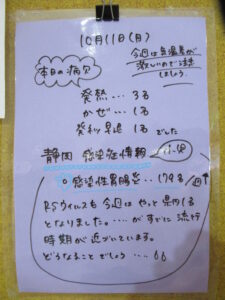 10月11日(月)
今週は気温差が
激しいので注意
しましょう。
本日の病欠
発熱…3名
かぜ…1名
発熱早退 1名でした
静岡 感染症情報
◎感染性胃腸炎…179名/週↑
RSウィルスも今週はやっと県内1名
となりました。…がすでに流行
時期が近づいています。
どうなることでしょう…。